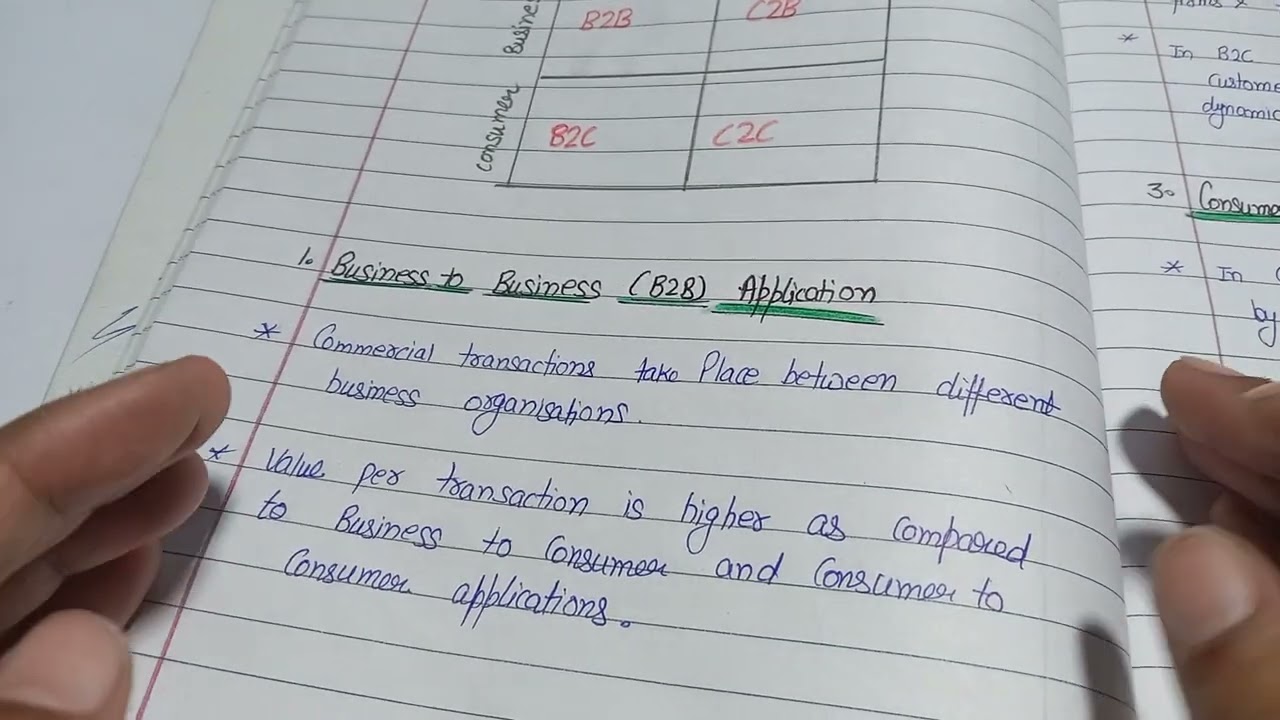 Business
B2B
C2B
Consumer
B2C
C2C
1. Business to Business (B2B) Application
* Commercial transactions take Place between different
business organisations.
* Value per transaction is higher as compared
to Business to Consumer and Consumer to
Consumer applications.
* In B2C
Custome
dynamic
3. Consume
* In
by